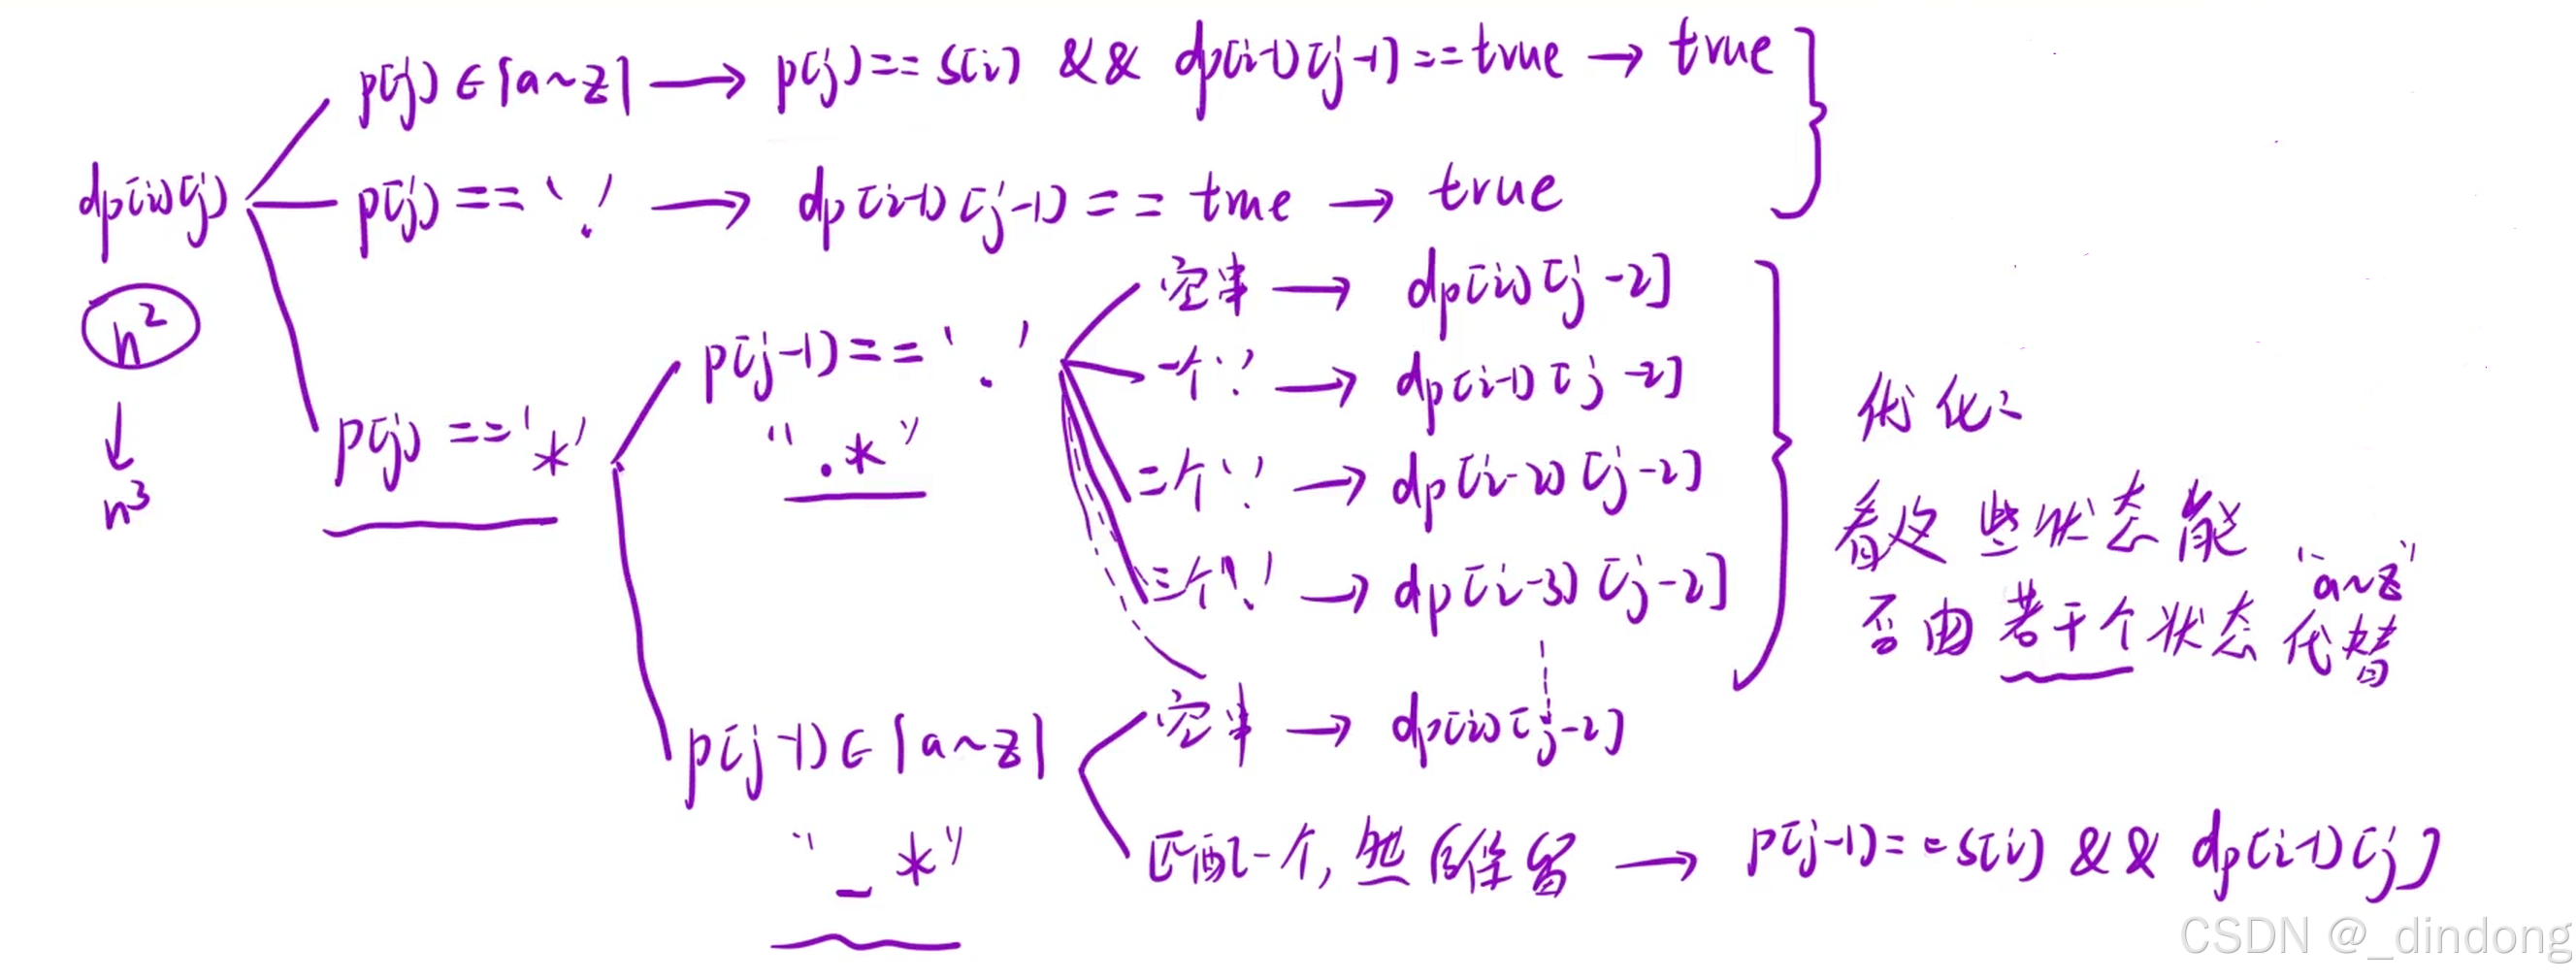 p[j] ∈ [a~z] → p[j] == s[i] && dp[i-1][j-1] == true → true
dp[i][j]
p[j] == '.' → dp[i-1][j-1] == true → true
n²
↓
n³
p[j] == '*'
p[j-1] == '.'
".*"
空串 → dp[i][j-2]
一个'.' → dp[i-1][j-2]
二个'.' → dp[i-2][j-2]
三个'.' → dp[i-3][j-2]
优化:
看这些状态能
否由若干个状态代替
"a~z"
p[j-1] ∈ [a~z]
"_*"
空串 → dp[i][j-2]
匹配一个, 然后保留 → p[j-1] == s[i] && dp[i-1][j]
CSDN @_dindong